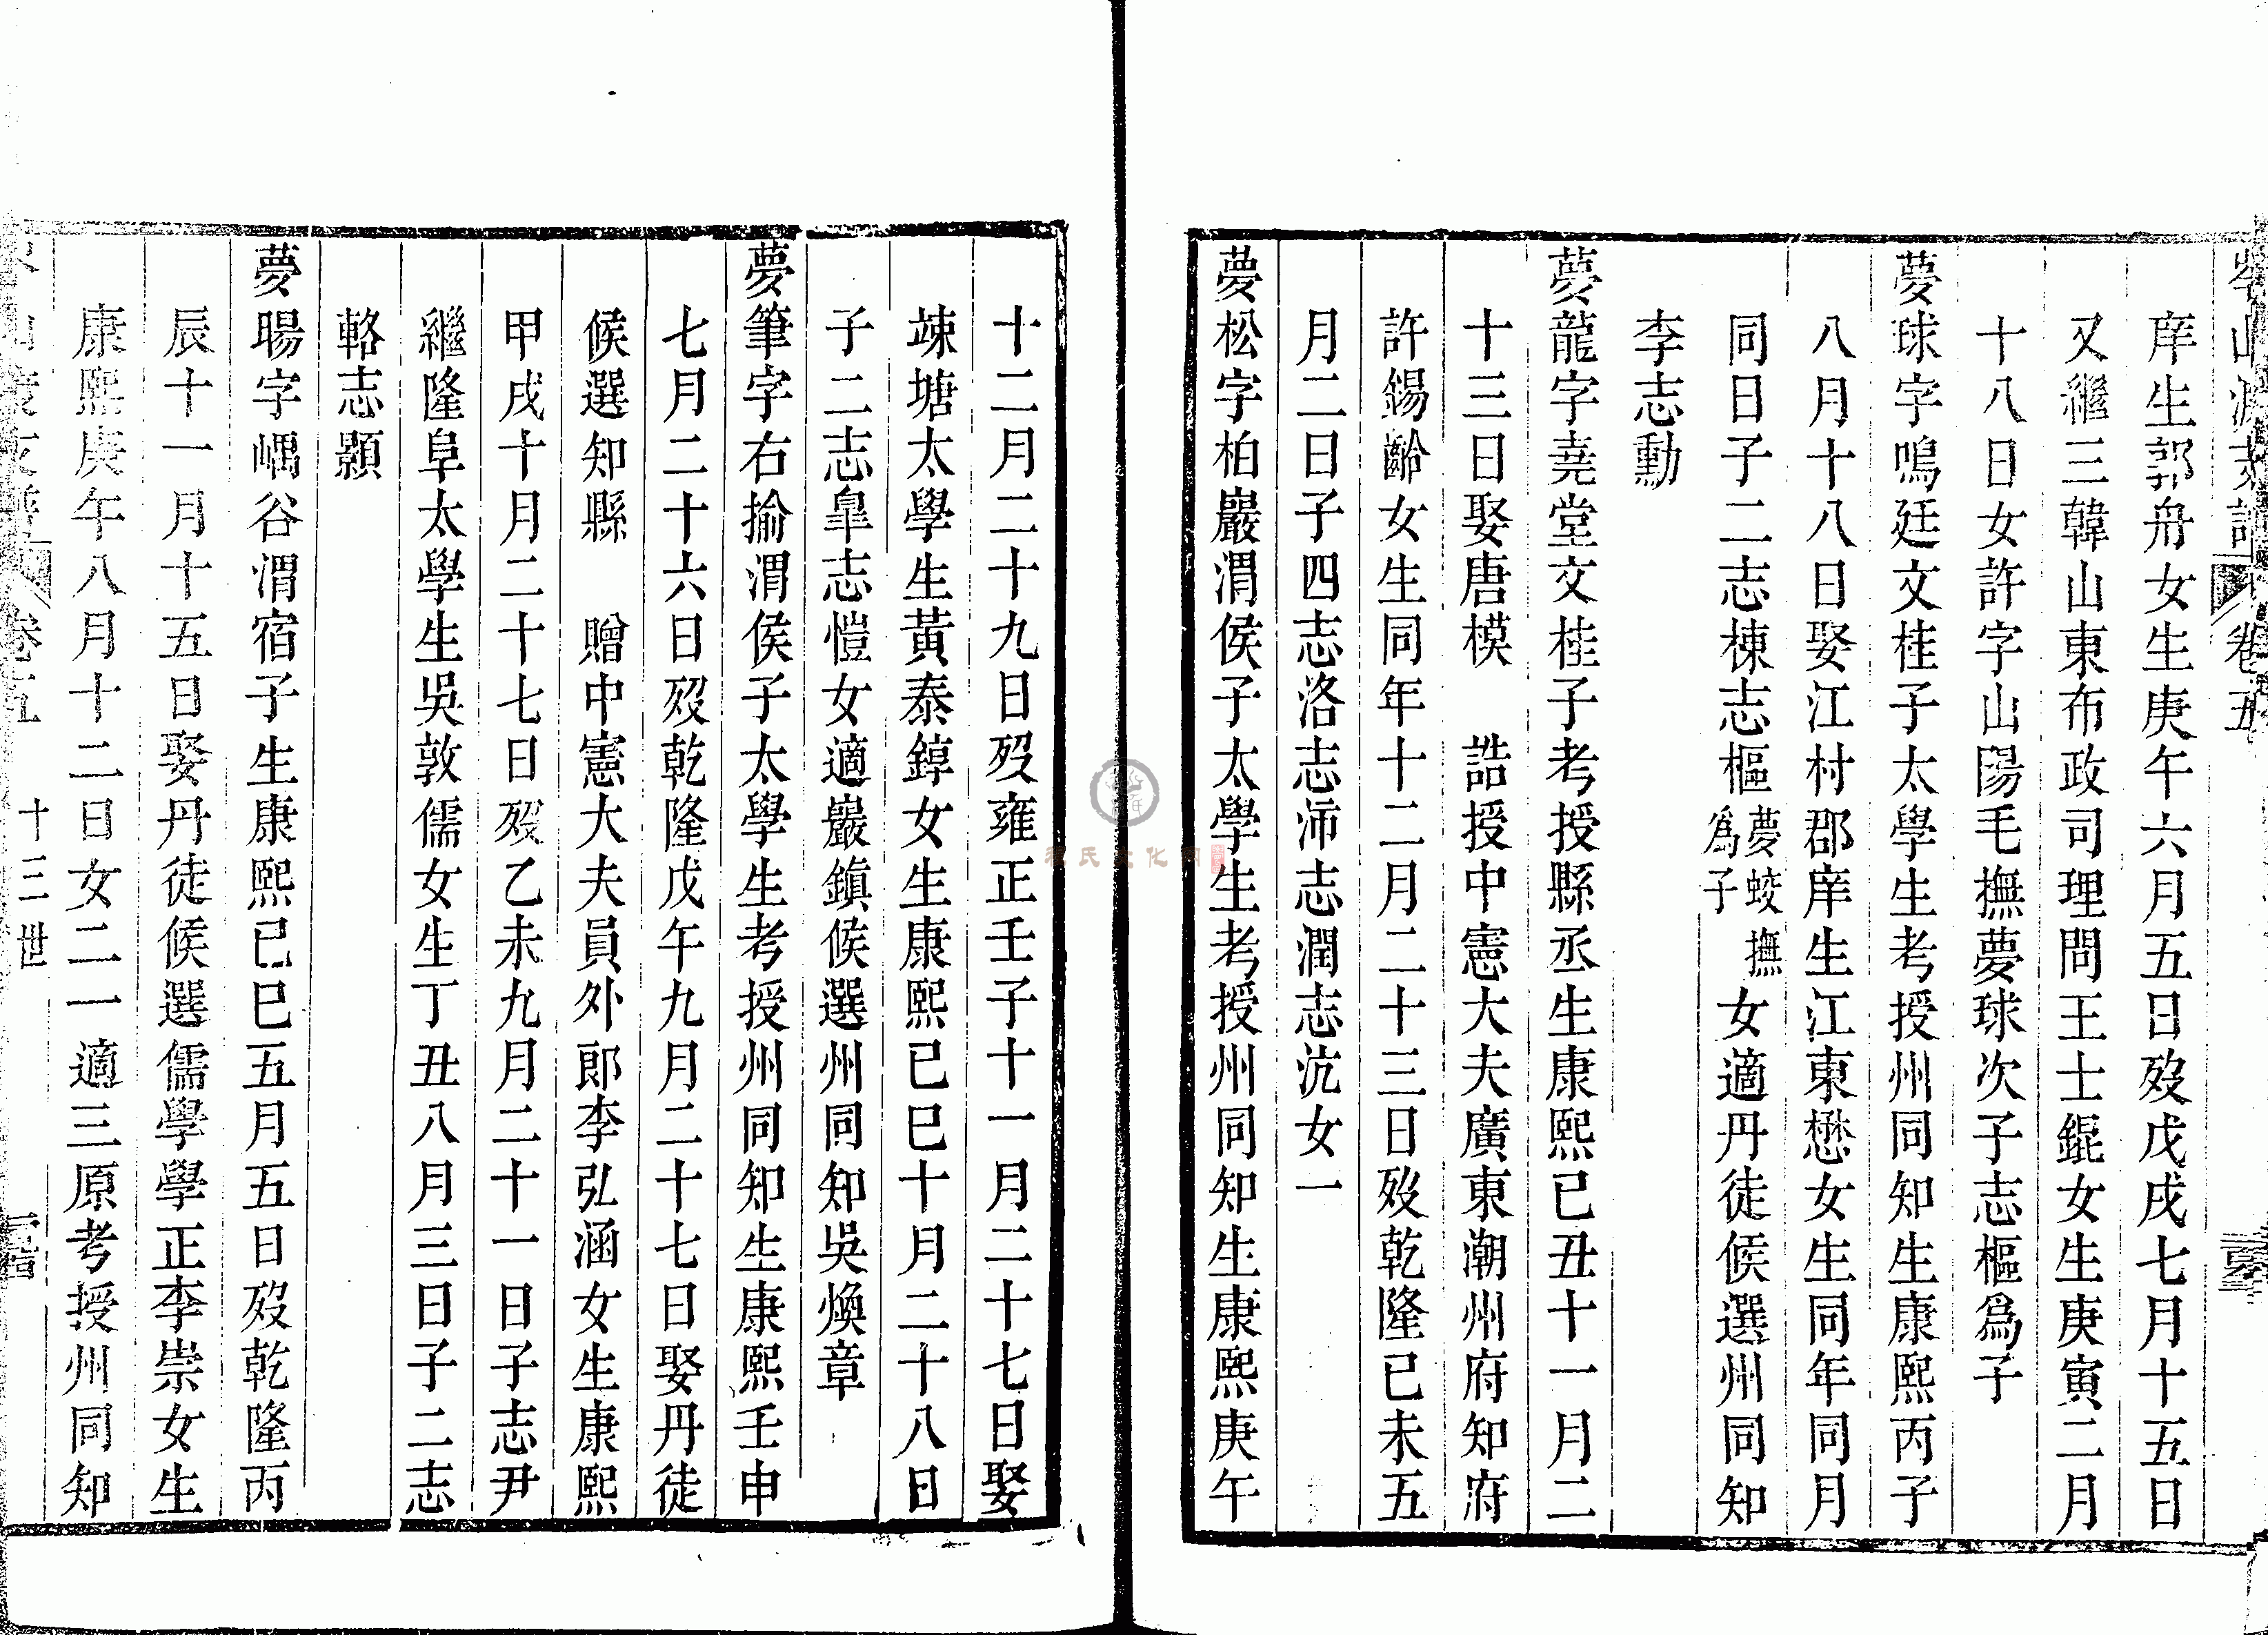 岑山渡支譜 卷五
庠生郭舟女生庚午六月五日歿戊戌七月十五日
又繼三韓山東布政司理問王士錕女生庚寅二月
十八日女許字山陽毛撫夢球次子志樞爲子
夢球字鳴廷文桂子太學生考授州同知生康熙丙子
八月十八日娶江村郡庠生江東懋女生同年同月
同日子二志棟志樞夢蛟撫爲子女適丹徒候選州同知
李志勳
夢龍字堯堂文桂子考授縣丞生康熙己丑十一月二
十三日娶唐模 誥授中憲大夫廣東潮州府知府
許錫齡女生同年十二月二十三日歿乾隆己未五
月二日子四志洛志沛志潤志沆女一
夢松字柏巖渭侯子太學生考授州同知生康熙庚午
十二月二十九日歿雍正壬子十一月二十七日娶
竦塘太學生黃泰錞女生康熙己巳十月二十八日
子二志皐志愷女適巖鎮候選州同知吳煥章
夢筆字右揄渭侯子太學生考授州同知生康熙壬申
七月二十六日歿乾隆戊午九月二十七日娶丹徒
候選知縣 贈中憲大夫員外郎李弘涵女生康熙
甲戌十月二十七日歿乙未九月二十一日子志尹
繼隆阜太學生吳敦儒女生丁丑八月三日子二志
輅志顥
夢暘字嵎谷渭宿子生康熙己巳五月五日歿乾隆丙
辰十一月十五日娶丹徒候選儒學學正李崇女生
康熙庚午八月十二日女二一適三原考授州同知
岑山渡支譜 卷五 十三世